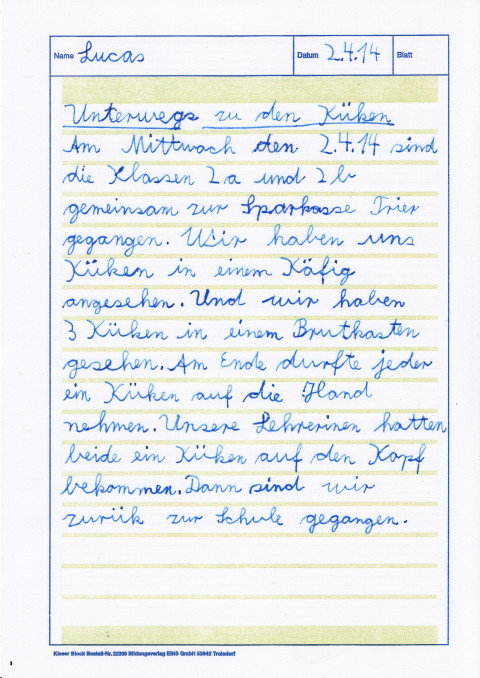 Name Lucas Datum 2.4.14 Blatt
Unterwegs zu den Küken
Am Mittwoch den 2.4.14 sind
die Klassen 2a und 2b
gemeinsam zur Sparkasse Trier
gegangen. Wir haben uns
Küken in einem Käfig
angesehen. Und wir haben
3 Küken in einem Brutkasten
gesehen. Am Ende durfte jeder
ein Küken auf die Hand
nehmen. Unsere Lehrerinen hatten
beide ein Küken auf den Kopf
bekommen. Dann sind wir
zurük zur Schule gegangen.
Kieser Block Bestell-Nr. 22200 Bildungsverlag EINS GmbH 53842 Troisdorf